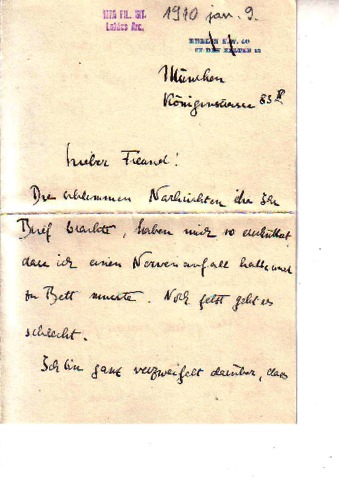 MTA FIL. INT.
Lukács Arc.
1910 jan. 9.
BERLIN N.W. 40
IN DEN ZELTEN
München
Königinstrasse 83 III
Lieber Freund!
Die schlimmen Nachrichten die Ihr
Brief brachte, haben mich so erschüttert
dass ich einen Nervenanfall hatte und
zu Bett musste. Noch jetzt geht es
schlecht.
Ich bin ganz verzweifelt darüber, dass